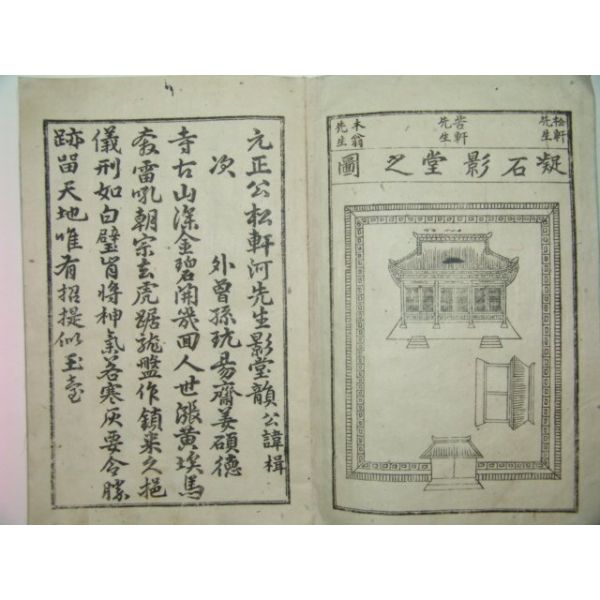 松軒先生
苦軒先生
木翁先生
凝石影堂之圖
元正公松軒河先生影堂韻 公諱楫
次 外曾孫玩易齋姜碩德
寺古山深金碧開幾回人世漲黃埃馬
奔雷吼朝宗去虎踞龍盤作鎮來久挹
儀刑如白璧肯將神氣若寒灰要令勝
跡留天地唯有招提似玉臺